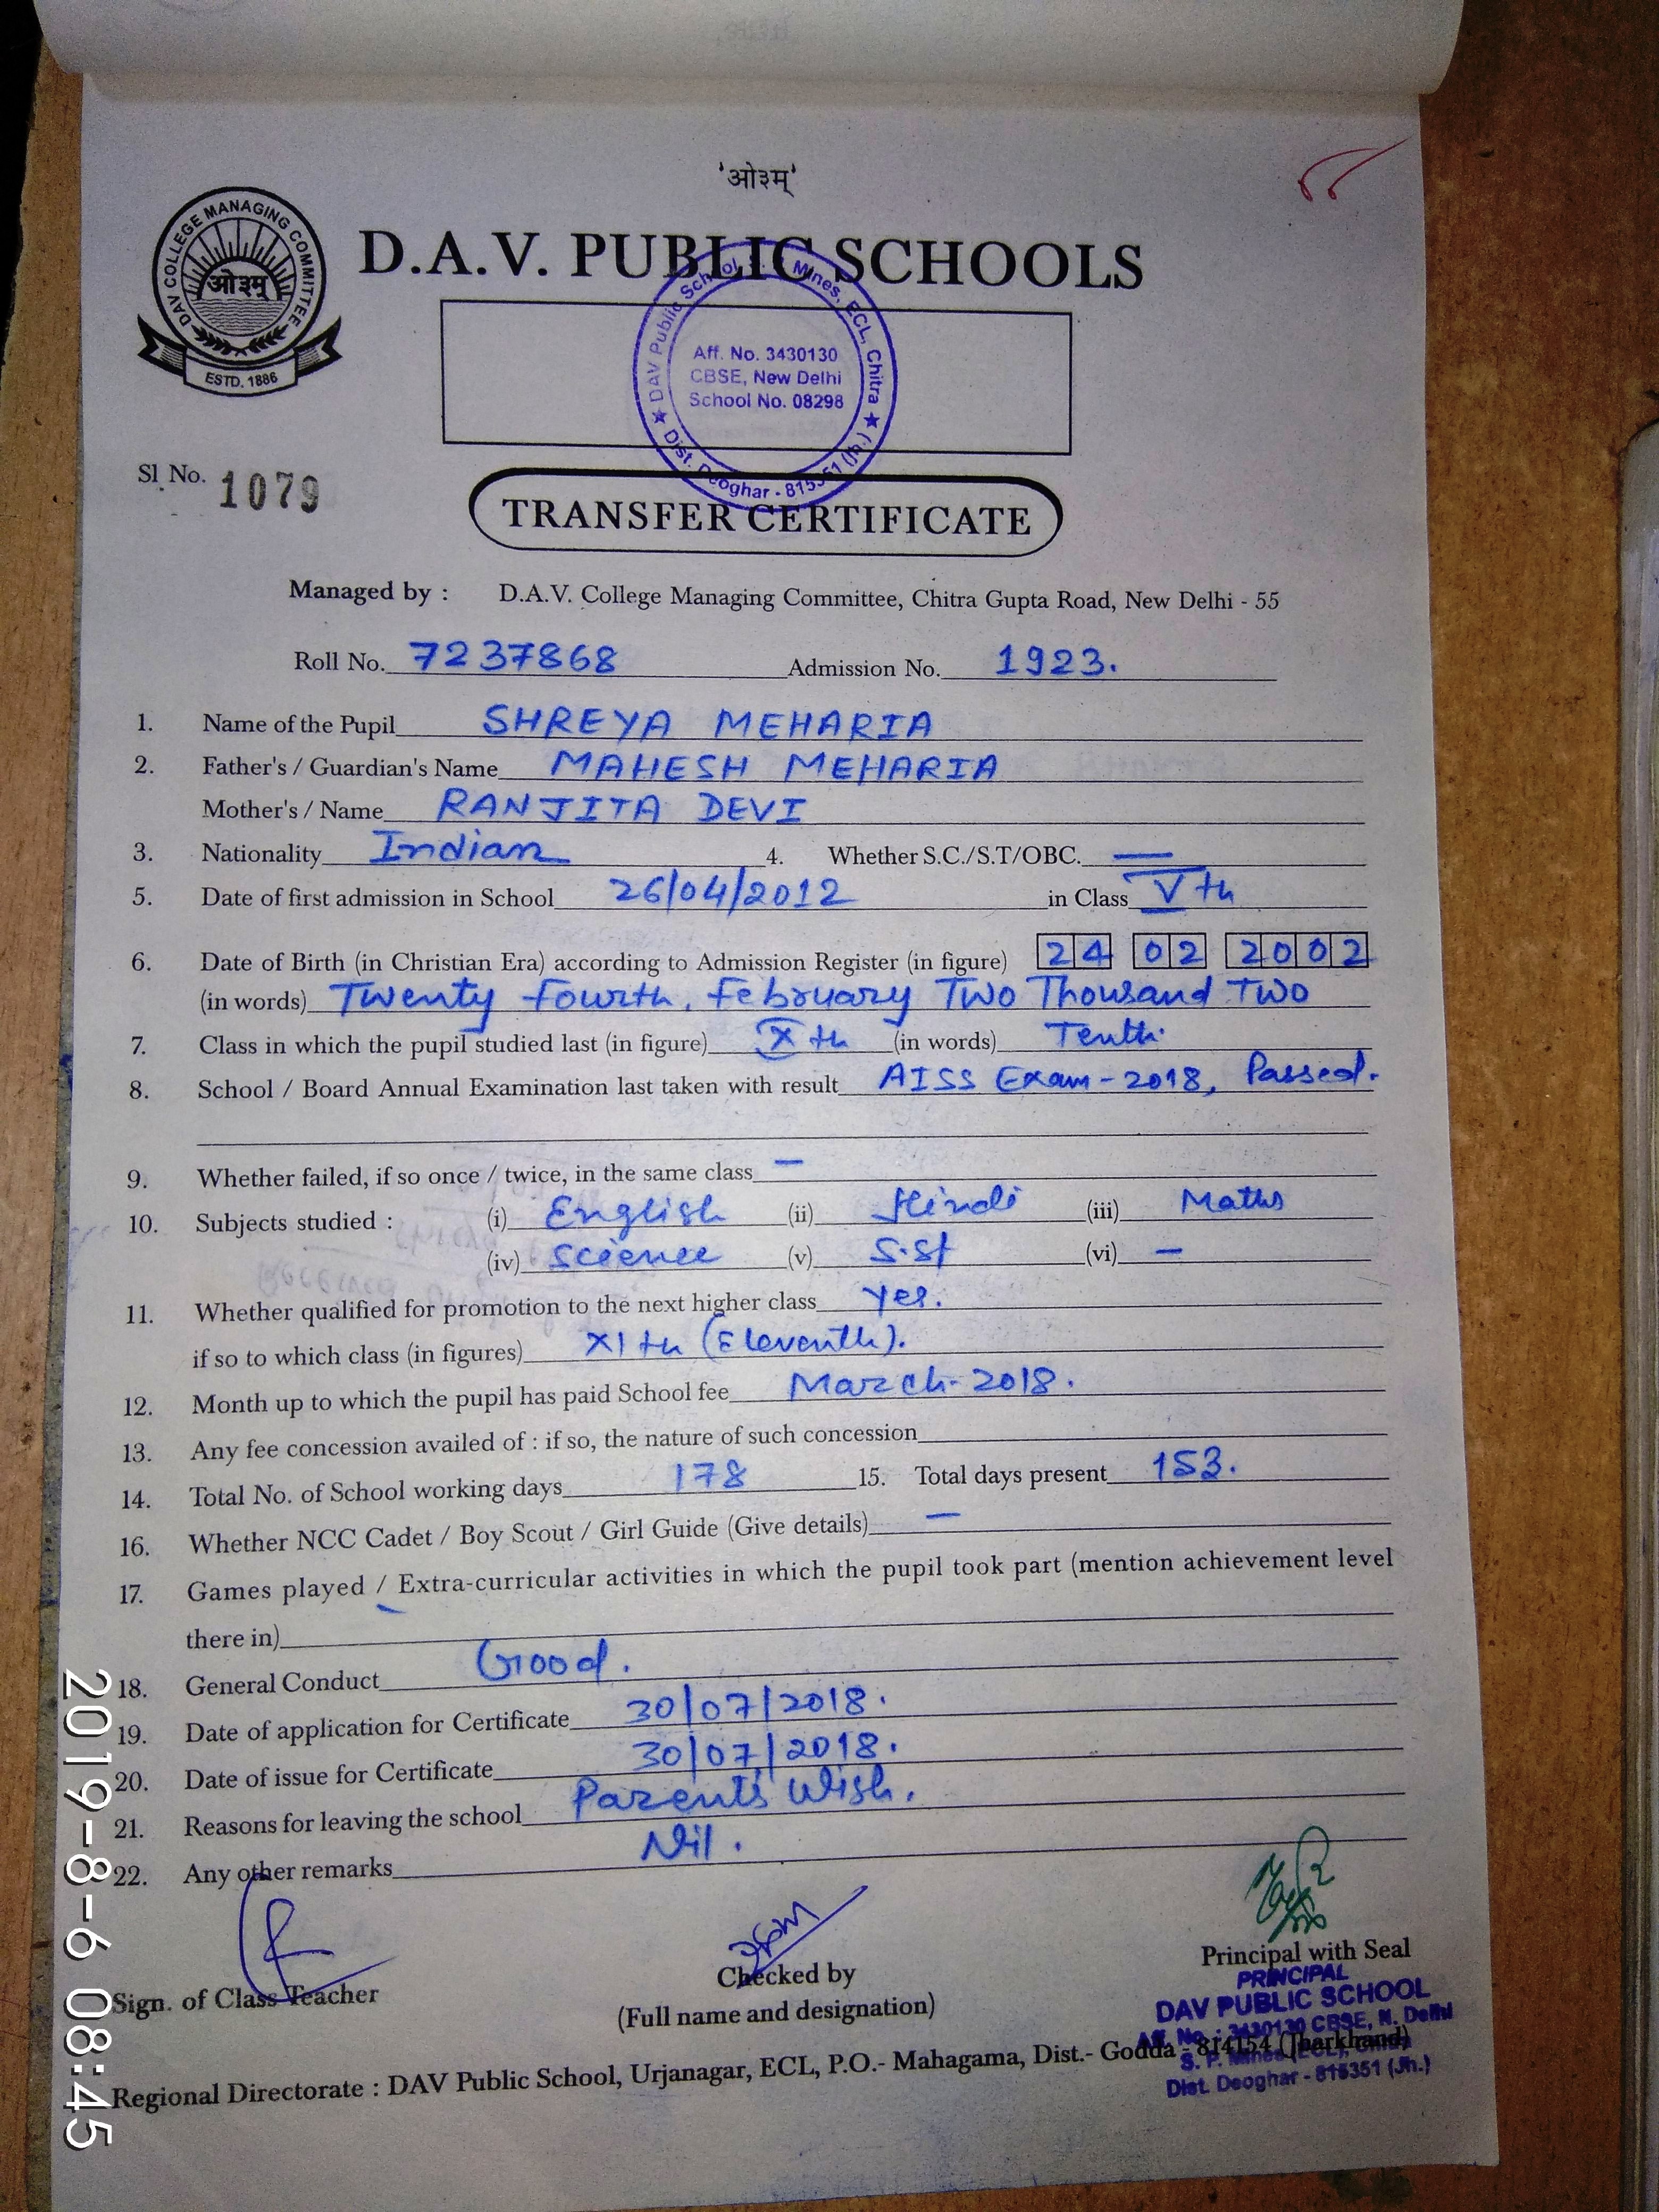 'ओ३म्'
DAV COLLEGE MANAGING COMMITTEE
ओ३म्
ESTD. 1886
D.A.V. PUBLIC SCHOOLS
DAV Public School Mines, ECL, Chitra
Aff. No. 3430130
CBSE, New Delhi
School No. 08298
Dist. Deoghar - 815351 (Jh.)
Sl No. 1079
TRANSFER CERTIFICATE
Managed by : D.A.V. College Managing Committee, Chitra Gupta Road, New Delhi - 55
Roll No. 7237868 Admission No. 1923.
1. Name of the Pupil SHREYA MEHARIA
2. Father's / Guardian's Name MAHESH MEHARIA
Mother's / Name RANJITA DEVI
3. Nationality Indian 4. Whether S.C./S.T/OBC. —
5. Date of first admission in School 26/04/2012 in Class Vth
6. Date of Birth (in Christian Era) according to Admission Register (in figure) 24 02 2002
(in words) Twenty Fourth, February Two Thousand Two
7. Class in which the pupil studied last (in figure) Xth (in words) Tenth.
8. School / Board Annual Examination last taken with result AISS Exam-2018, Passed.
9. Whether failed, if so once / twice, in the same class —
10. Subjects studied : (i) English (ii) Hindi (iii) Maths
(iv) Science (v) S.St (vi) —
11. Whether qualified for promotion to the next higher class Yes.
if so to which class (in figures) XIth (Eleventh).
12. Month up to which the pupil has paid School fee March-2018.
13. Any fee concession availed of : if so, the nature of such concession
14. Total No. of School working days 178 15. Total days present 153.
16. Whether NCC Cadet / Boy Scout / Girl Guide (Give details) —
17. Games played / Extra-curricular activities in which the pupil took part (mention achievement level
there in)
18. General Conduct Good.
19. Date of application for Certificate 30/07/2018.
20. Date of issue for Certificate 30/07/2018.
21. Reasons for leaving the school Parent's Wish.
22. Any other remarks Nil.
Sign. of Class Teacher
Checked by
(Full name and designation)
Principal with Seal
PRINCIPAL
DAV PUBLIC SCHOOL
Aff. No. : 3430130 CBSE, N. Delhi
S. P. Mines (ECL),
Dist. Deoghar - 815351 (Jh.)
Regional Directorate : DAV Public School, Urjanagar, ECL, P.O.- Mahagama, Dist.- Godda - 814154 (Jharkhand)
2019-8-6 08:45